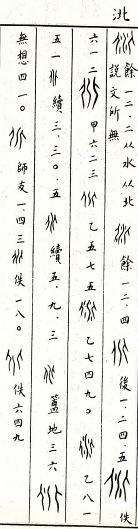 餘一二.一 从水从北 說文所無 餘一二.四 後一.二四.五 佚
六一二 甲六二三 乙五七五 乙七四九〇 乙八一
五一 續三.三〇.五 續五.九.三 簠地三六
無想四一〇 師友一.四三 佚一八〇 佚六四九